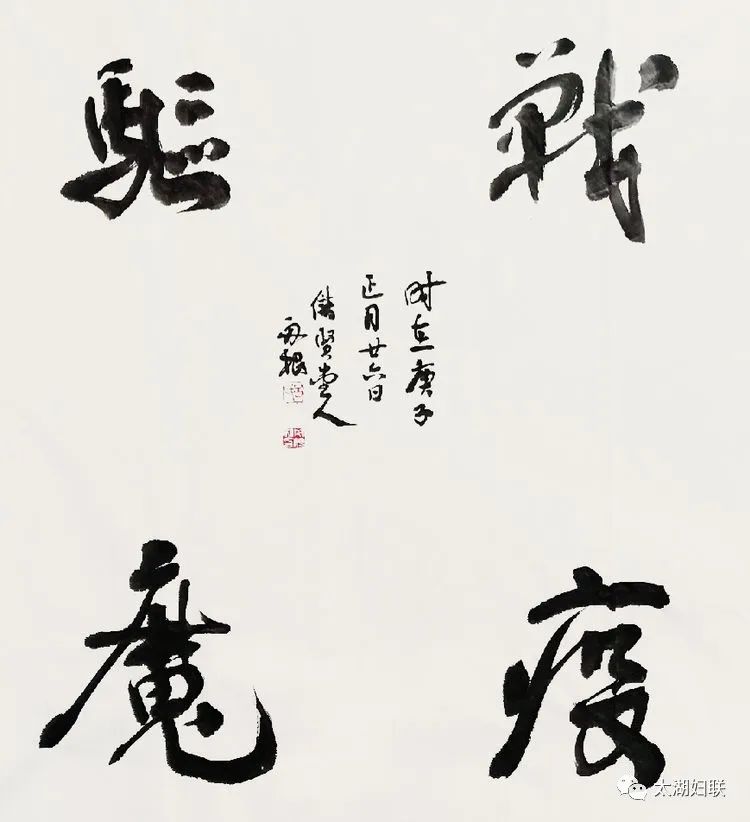 戰疫
驅魔
时在庚子
正月廿六日
賢堂人
太湖妇联